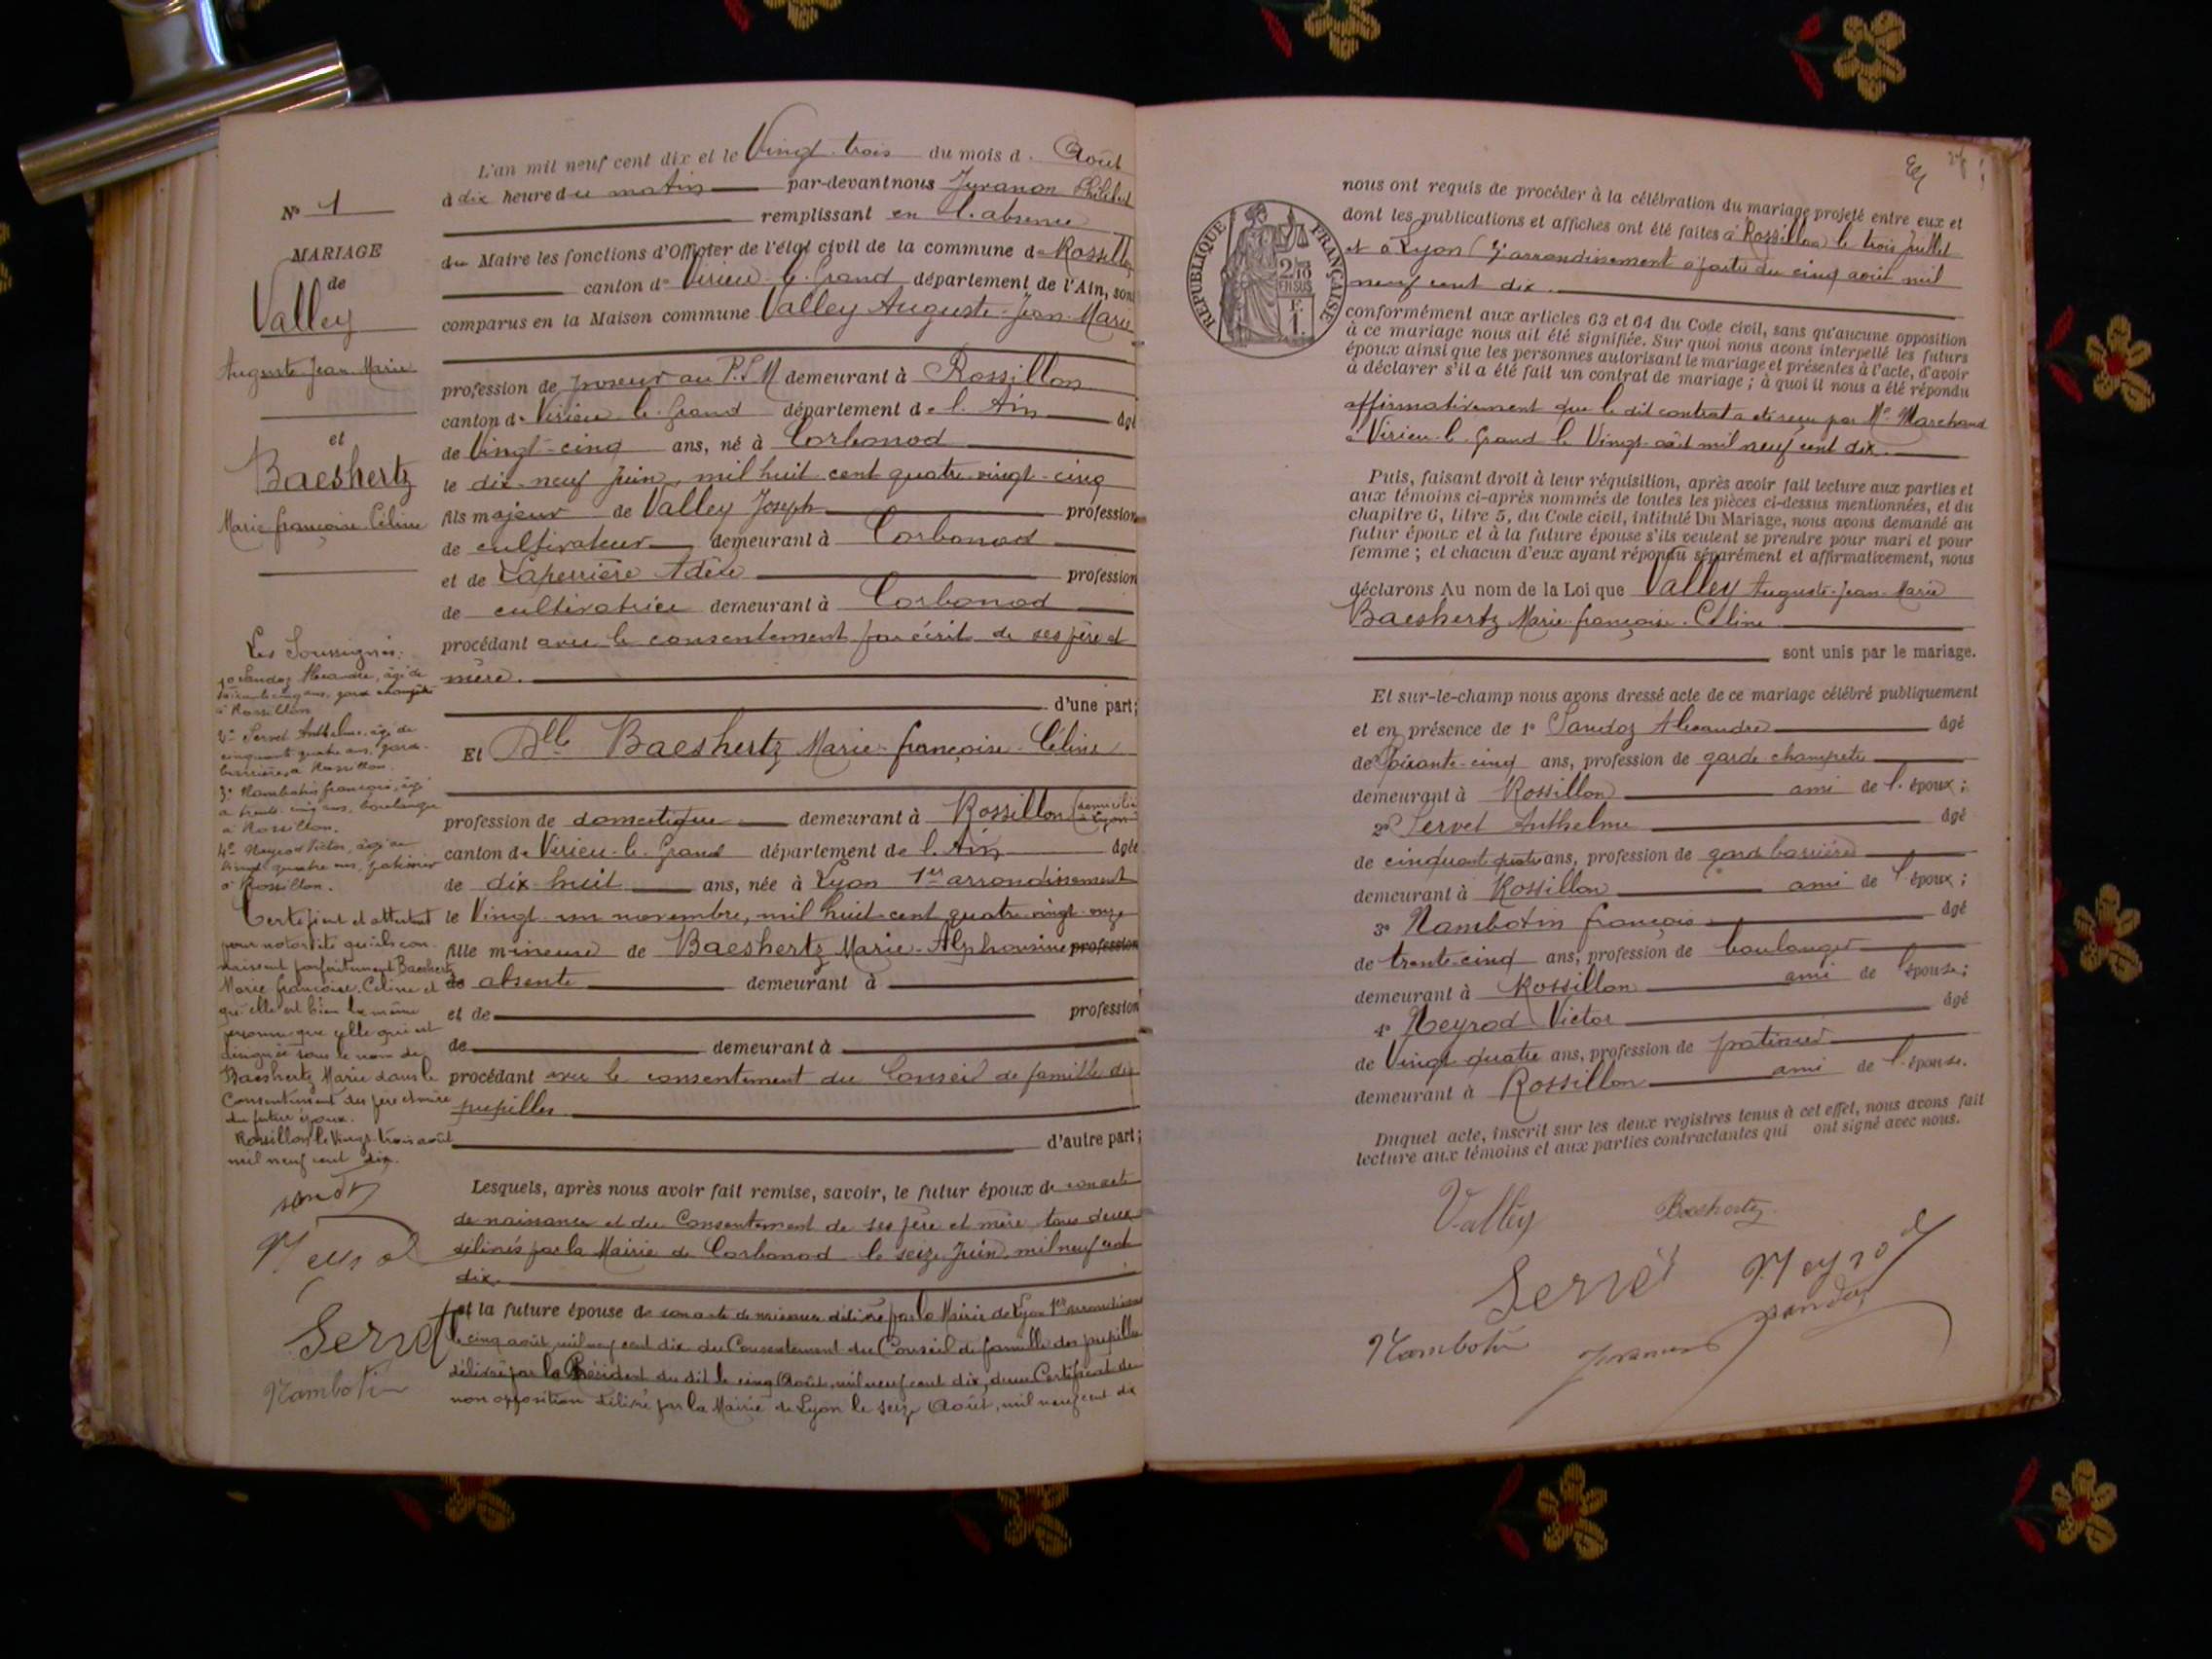 N° 1
MARIAGE
de
Valley
Auguste Jean Marie
et
Baeshertz
Marie françoise Céline
Les Soussignés:
1° Sandoz Alexandre, âgé de
soixante cinq ans, garde champêtre
à Rossillon
2° Servet Anthelme, âgé de
cinquante quatre ans, garde-
barrières à Rossillon.
3° Nambotin françois, âgé
de trente cinq ans, boulanger
à Rossillon.
4° Neyrod Victor, âgé de
Vingt quatre ans, patinier
à Rossillon.
Certifient et attestent
pour notoriété qu'ils con-
naissent parfaitement Baeshertz
Marie françoise Céline et
qu'elle est bien la même
personne que celle qui est
désignée sous le nom de
Baeshertz Marie dans le
Consentement des père et mère
du futur époux.
Rossillon le Vingt-trois août
mil neuf cent dix.
Sandoz
Neyrod
Servet
Nambotin
L'an mil neuf cent dix et le Vingt-trois du mois d. Août
à dix heure du matin par-devant nous Juranon Philibert
remplissant en l'absence
du Maire les fonctions d'Officier de l'état civil de la commune de Rossillon
canton de Virieu-le-Grand département de l'Ain, sont
comparus en la Maison commune Valley Auguste-Jean-Marie
profession de poseur au P.L.M demeurant à Rossillon
canton de Virieu le Grand département de l'Ain âgé
de Vingt-cinq ans, né à Corbonod
le dix-neuf Juin, mil huit cent quatre vingt-cinq
fils majeur de Valley Joseph profession
de cultivateur demeurant à Corbonod
et de Laperrière Adèle profession
de cultivatrice demeurant à Corbonod
procédant avec le consentement par écrit de ses père et
mère.
d'une part;
Et Dlle Baeshertz Marie-françoise-Céline
profession de domestique demeurant à Rossillon (domiciliée à Lyon)
canton de Virieu-le-Grand département de l'Ain âgée
de dix-huit ans, née à Lyon 1er arrondissement
le Vingt-un novembre, mil huit-cent quatre-vingt-onze
fille mineure de Baeshertz Marie-Alphonsine profession
de absente demeurant à
et de profession
de demeurant à
procédant avec le consentement du Conseil de famille des
pupilles.
d'autre part;
Lesquels, après nous avoir fait remise, savoir, le futur époux de son acte
de naissance et du Consentement de ses père et mère, tous deux
délivrés par la Mairie de Corbonod le seize Juin, mil neuf cent
dix.
et la future épouse de son acte de naissance délivré par la Mairie de Lyon 1er arrondissement
le cinq août, mil neuf cent dix du Consentement du Conseil de famille des pupilles
délivré par le Président du dit le cinq Août, mil neuf cent dix, d'un Certificat de
non opposition délivré par la Mairie de Lyon le seize Août, mil neuf cent dix
RÉPUBLIQUE FRANÇAISE
2/10
EN SUS
F.
1.
nous ont requis de procéder à la célébration du mariage projeté entre eux et
dont les publications et affiches ont été faites à Rossillon le trois Juillet
et à Lyon arrondissement à partir du cinq août mil
neuf cent dix.
conformément aux articles 63 et 64 du Code civil, sans qu'aucune opposition
à ce mariage nous ait été signifiée. Sur quoi nous avons interpellé les futurs
époux ainsi que les personnes autorisant le mariage et présentes à l'acte, d'avoir
à déclarer s'il a été fait un contrat de mariage; à quoi il nous a été répondu
affirmativement que le dit contrat a été reçu par Me Marchand
à Virieu-le-Grand le Vingt août mil neuf cent dix.
Puis, faisant droit à leur réquisition, après avoir fait lecture aux parties et
aux témoins ci-après nommés de toutes les pièces ci-dessus mentionnées, et du
chapitre 6, titre 5, du Code civil, intitulé Du Mariage, nous avons demandé au
futur époux et à la future épouse s'ils veulent se prendre pour mari et pour
femme; et chacun d'eux ayant répondu séparément et affirmativement, nous
déclarons Au nom de la Loi que Valley Auguste-Jean-Marie
Baeshertz Marie-françoise-Céline
sont unis par le mariage.
Et sur-le-champ nous avons dressé acte de ce mariage célébré publiquement
et en présence de 1° Sandoz Alexandre âgé
de Soixante-cinq ans, profession de garde-champêtre
demeurant à Rossillon ami de l'époux;
2° Servet Anthelme âgé
de cinquante quatre ans, profession de garde barrières
demeurant à Rossillon ami de l'époux;
3° Nambotin françois âgé
de trente-cinq ans, profession de boulanger
demeurant à Rossillon ami de l'épouse;
4° Neyrod Victor âgé
de Vingt quatre ans, profession de patinier
demeurant à Rossillon ami de l'épouse.
Duquel acte, inscrit sur les deux registres tenus à cet effet, nous avons fait
lecture aux témoins et aux parties contractantes qui ont signé avec nous.
Valley Baeshertz
Servet Neyrod
Sandoz
Nambotin Juranon